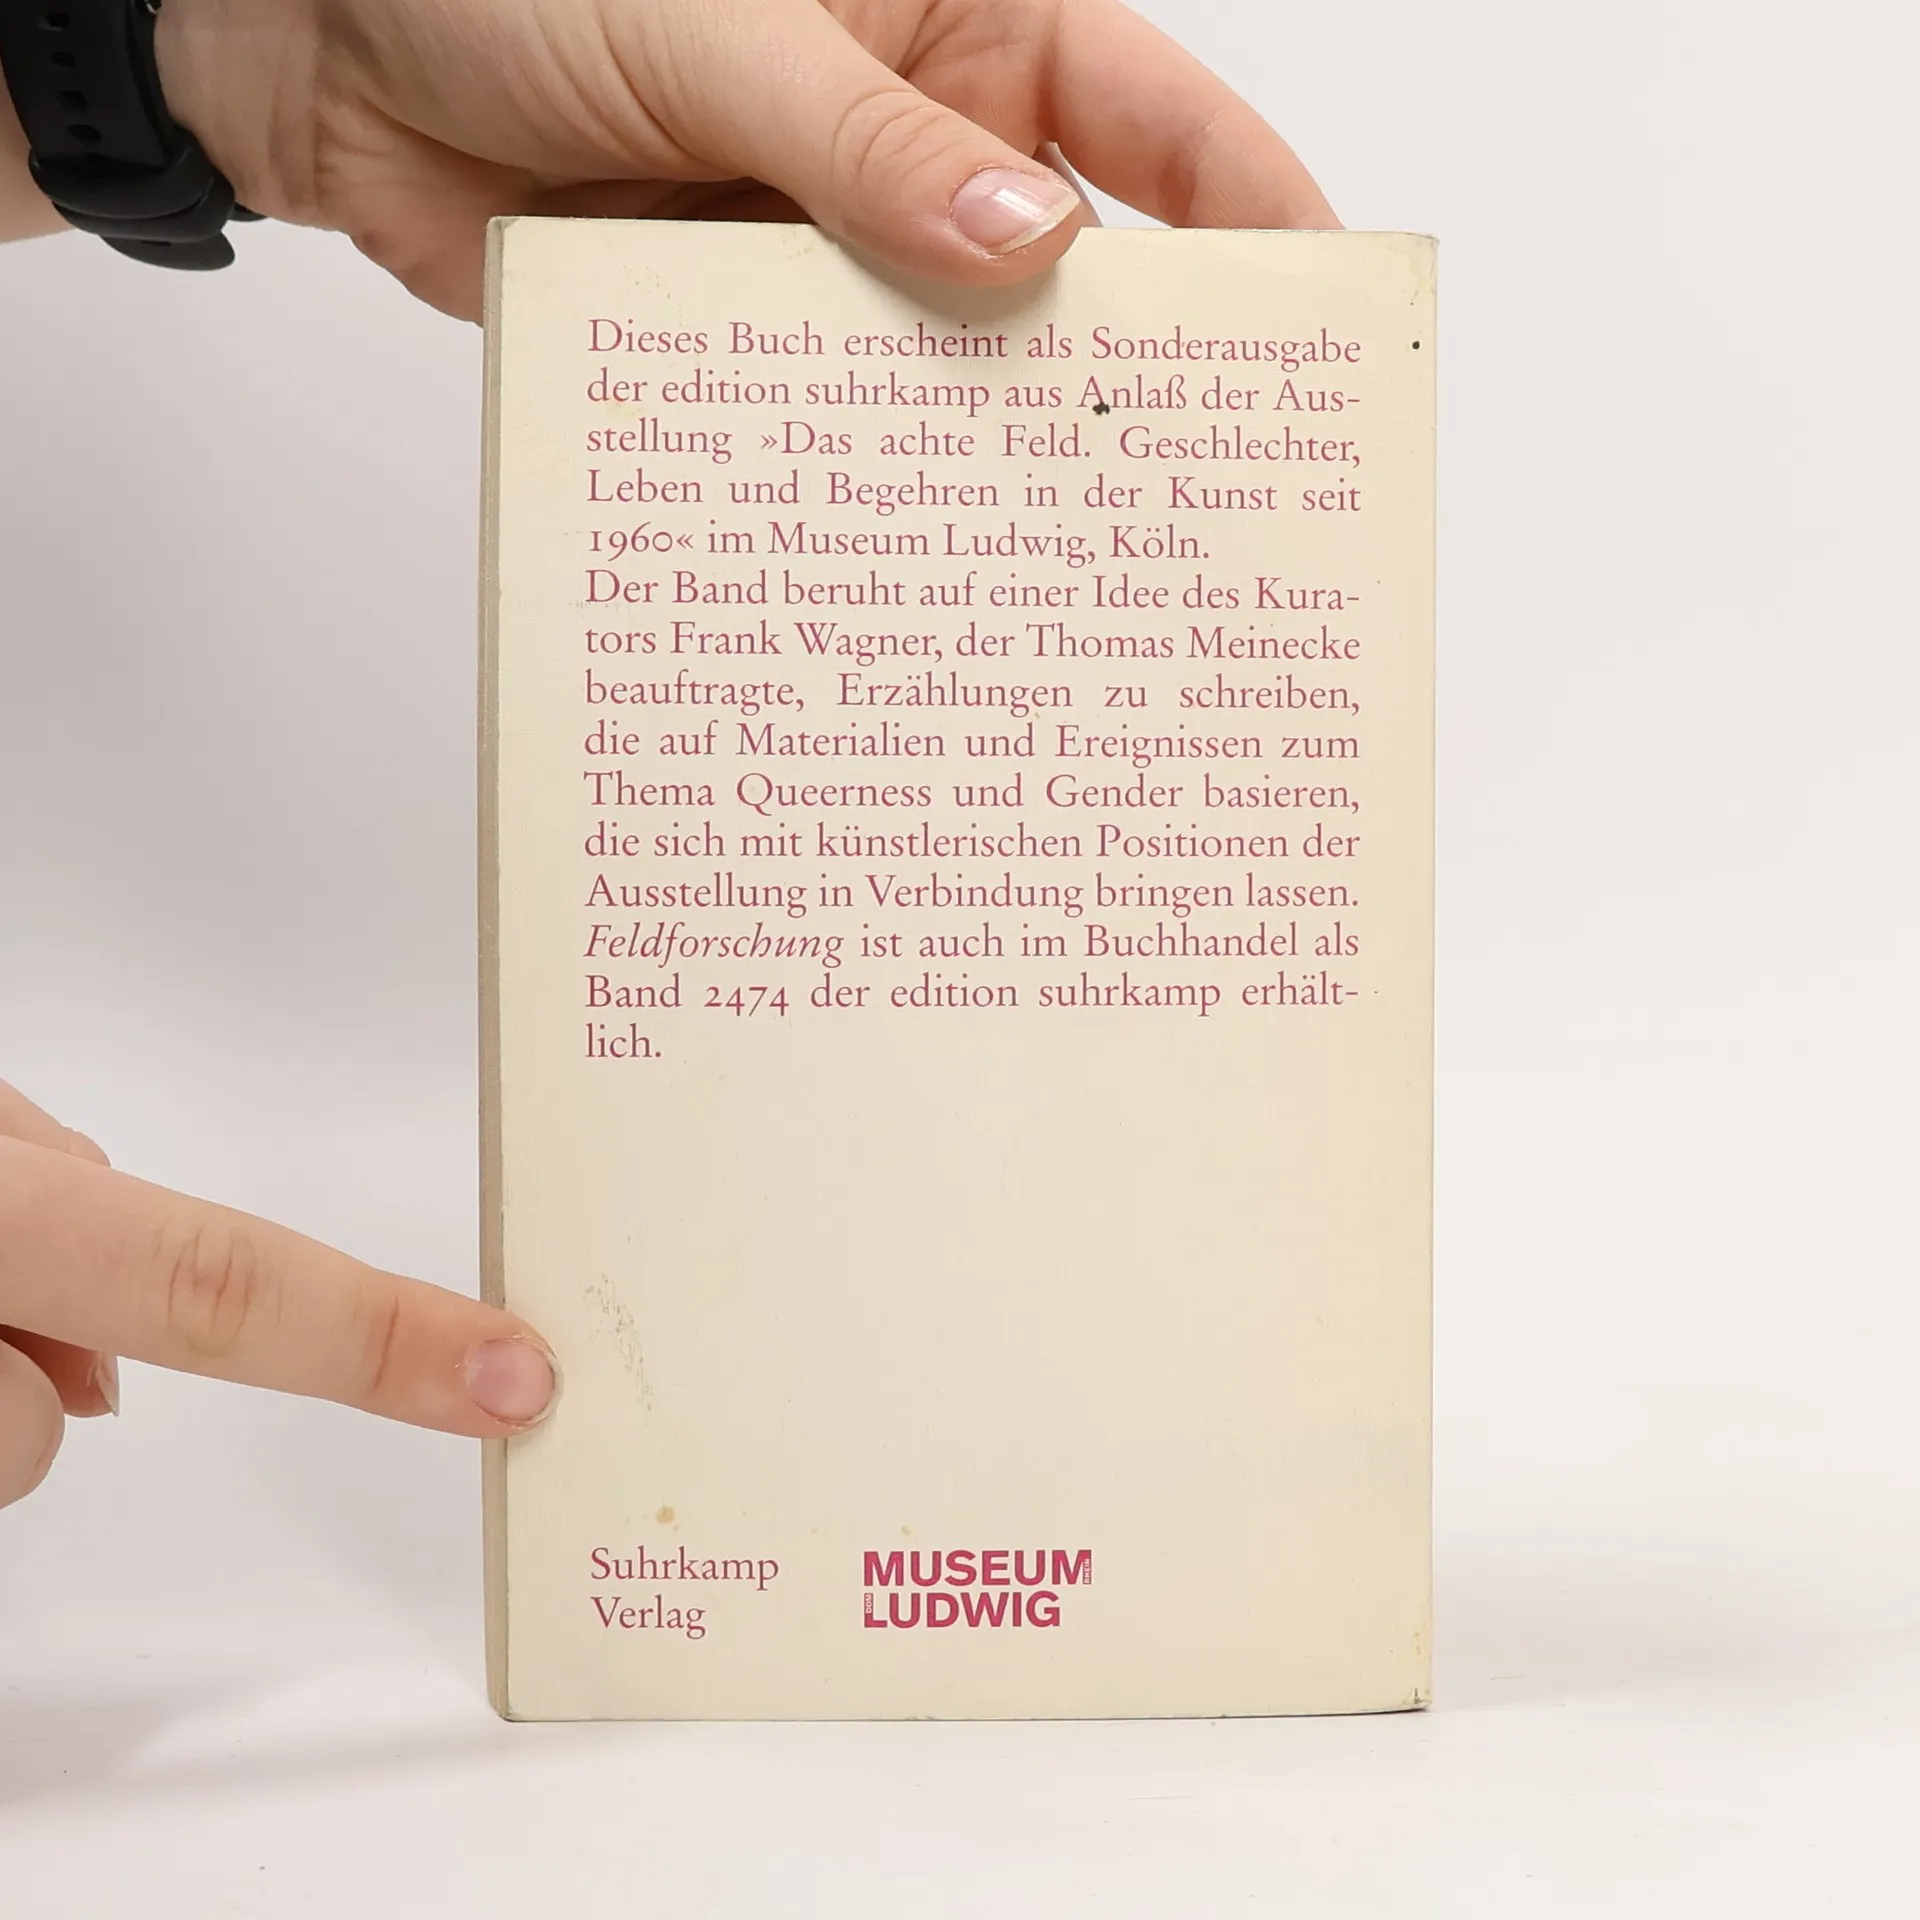 Dieses Buch erscheint als Sonderausgabe
der edition suhrkamp aus Anlaß der Aus-
stellung »Das achte Feld. Geschlechter,
Leben und Begehren in der Kunst seit
1960« im Museum Ludwig, Köln.
Der Band beruht auf einer Idee des Kura-
tors Frank Wagner, der Thomas Meinecke
beauftragte, Erzählungen zu schreiben,
die auf Materialien und Ereignissen zum
Thema Queerness und Gender basieren,
die sich mit künstlerischen Positionen der
Ausstellung in Verbindung bringen lassen.
Feldforschung ist auch im Buchhandel als
Band 2474 der edition suhrkamp erhält-
lich.
Suhrkamp
Verlag
MUSEUM
RHEIN
DOM
LUDWIG